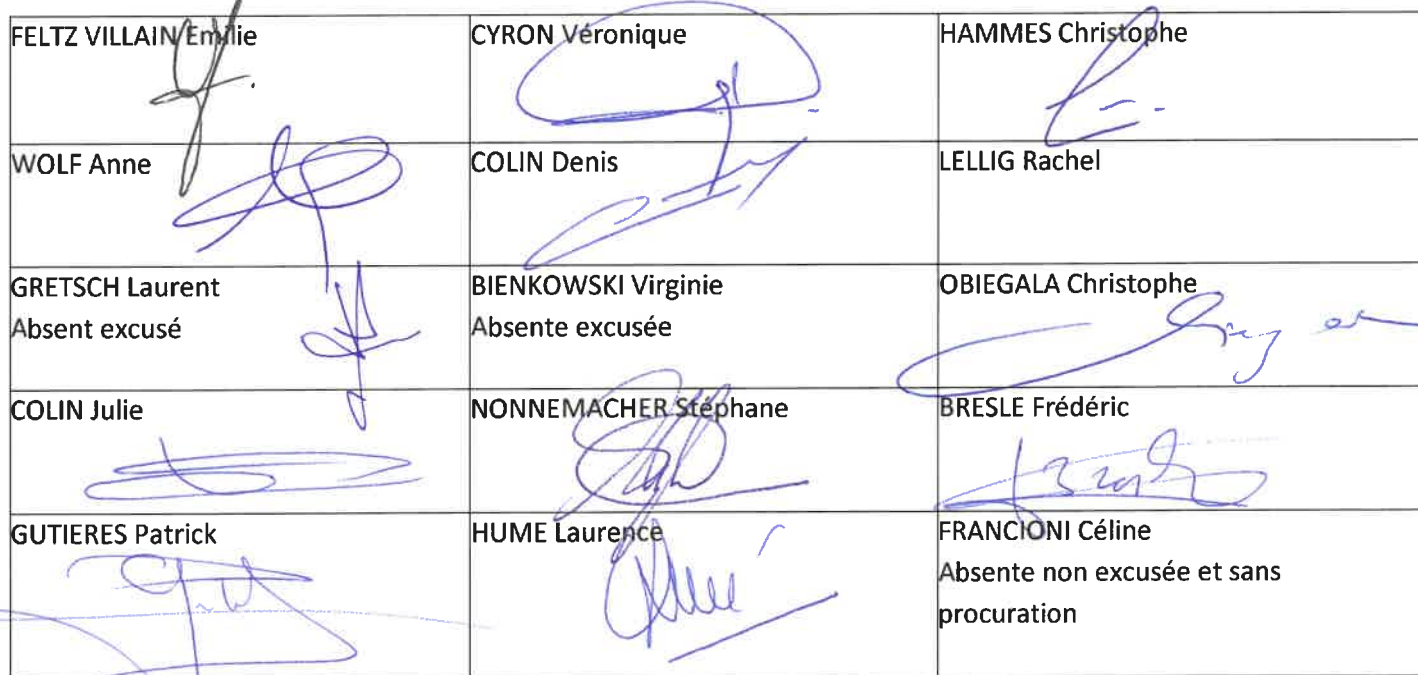 FELTZ VILLAIN Emilie
CYRON Véronique
HAMMES Christophe
WOLF Anne
COLIN Denis
LELLIG Rachel
GRETSCH Laurent
Absent excusé
BIENKOWSKI Virginie
Absente excusée
OBIEGALA Christophe
COLIN Julie
NONNEMACHER Stéphane
BRESLE Frédéric
GUTIERES Patrick
HUME Laurence
FRANCIONI Céline
Absente non excusée et sans
procuration